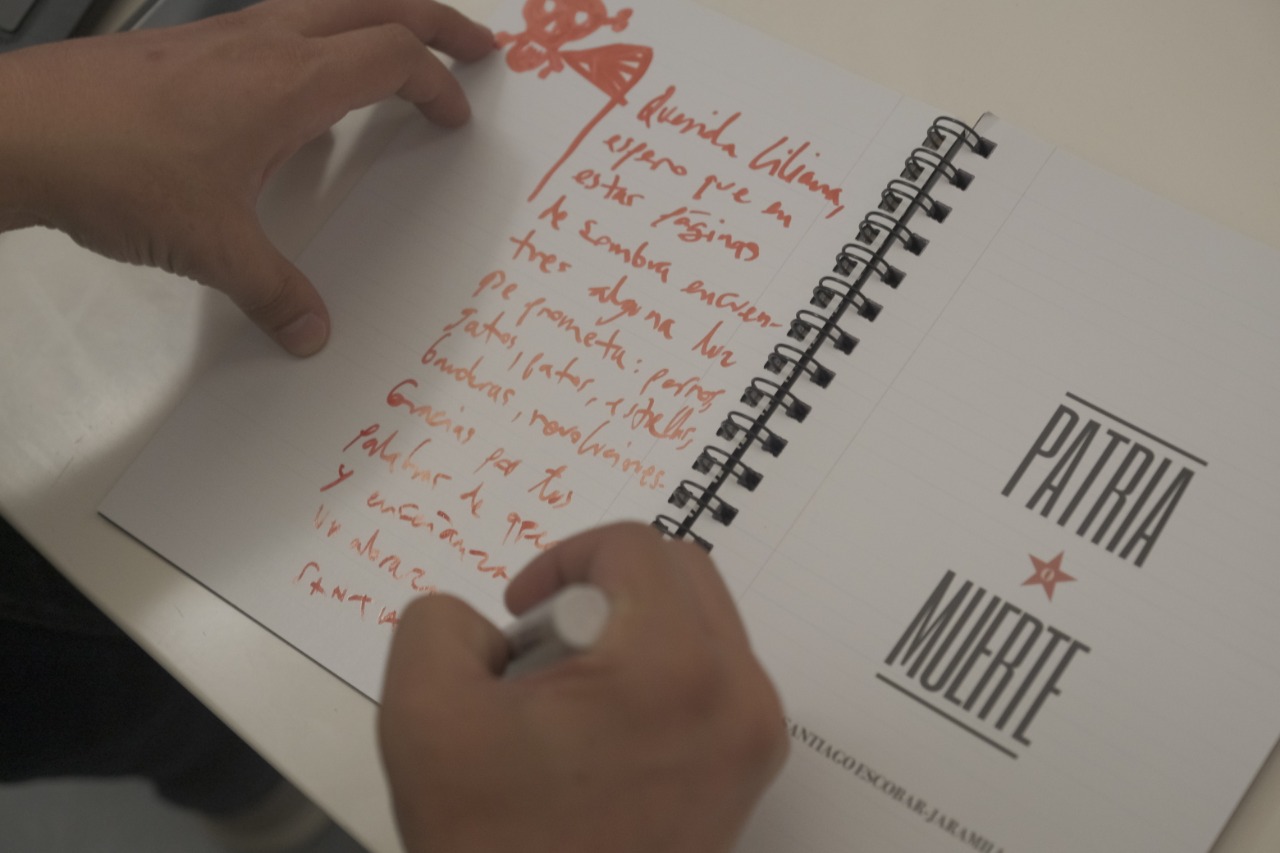 Querida Liliana,
espero que en
estas páginas
de sombra encuen-
tres alguna luz
que prometa: perros,
gatos, patos, estrellas,
banderas, revoluciones.
Gracias por tus
palabras de
y enseñanza
Un abrazo
SANTIA
PATRIA
O
MUERTE
SANTIAGO ESCOBAR-JARAMILL